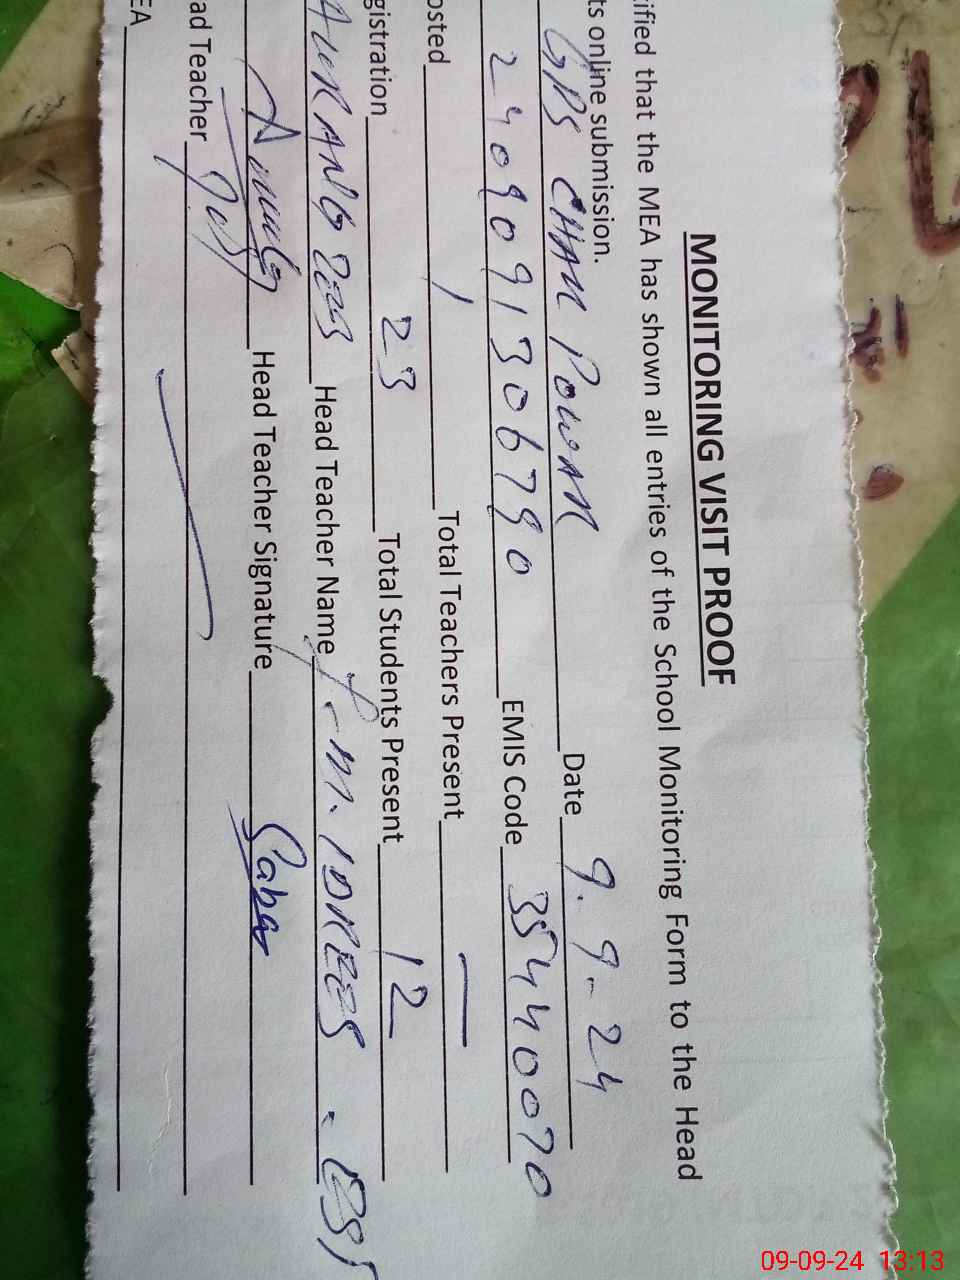 MONITORING VISIT PROOF
ified that the MEA has shown all entries of the School Monitoring Form to the Head
ts online submission.
GPS CHAK POWAR Date 9.9-24
2409091306790 EMIS Code 35440070
osted 1 Total Teachers Present —
gistration 23 Total Students Present 12
AURANGZEB Head Teacher Name M. IDREES . EST
Head Teacher Signature Saba
ad Teacher
EA
09-09-24 13:13